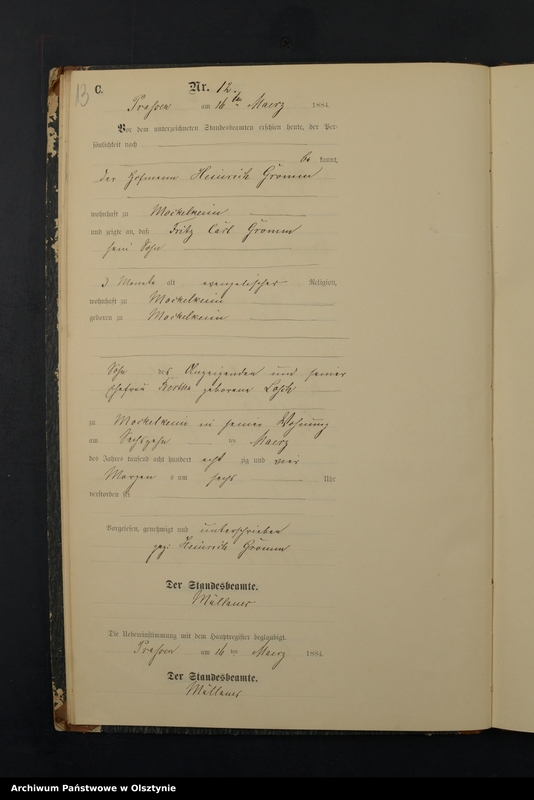 13
C.
Nr. 12.
Prassen am 16ten Maerz 1884.
Vor dem unterzeichneten Standesbeamten erschien heute, der Per-
sönlichkeit nach
be kannt,
der Hofmann Heinrich Gromm
wohnhaft zu Mockelkeim
und zeigte an, daß Fritz Carl Gromm
sein Sohn
3 Monate alt evangelischer Religion,
wohnhaft zu Mockelkeim
geboren zu Mockelkeim
Sohn des Anzeigenden und seiner
Ehefrau Bertha geborene
zu Mockelkeim in seiner Wohnung
am Sechszehn ten Maerz
des Jahres tausend acht hundert acht zig und vier
Morgen s um sechs Uhr
verstorben sei
Vorgelesen, genehmigt und unterschrieben
gez: Heinrich Gromm
Der Standesbeamte.
Müllauer
Die Uebereinstimmung mit dem Hauptregister beglaubigt.
Prassen am 16 ten Maerz 1884.
Der Standesbeamte.
Müllauer
Archiwum Państwowe w Olsztynie